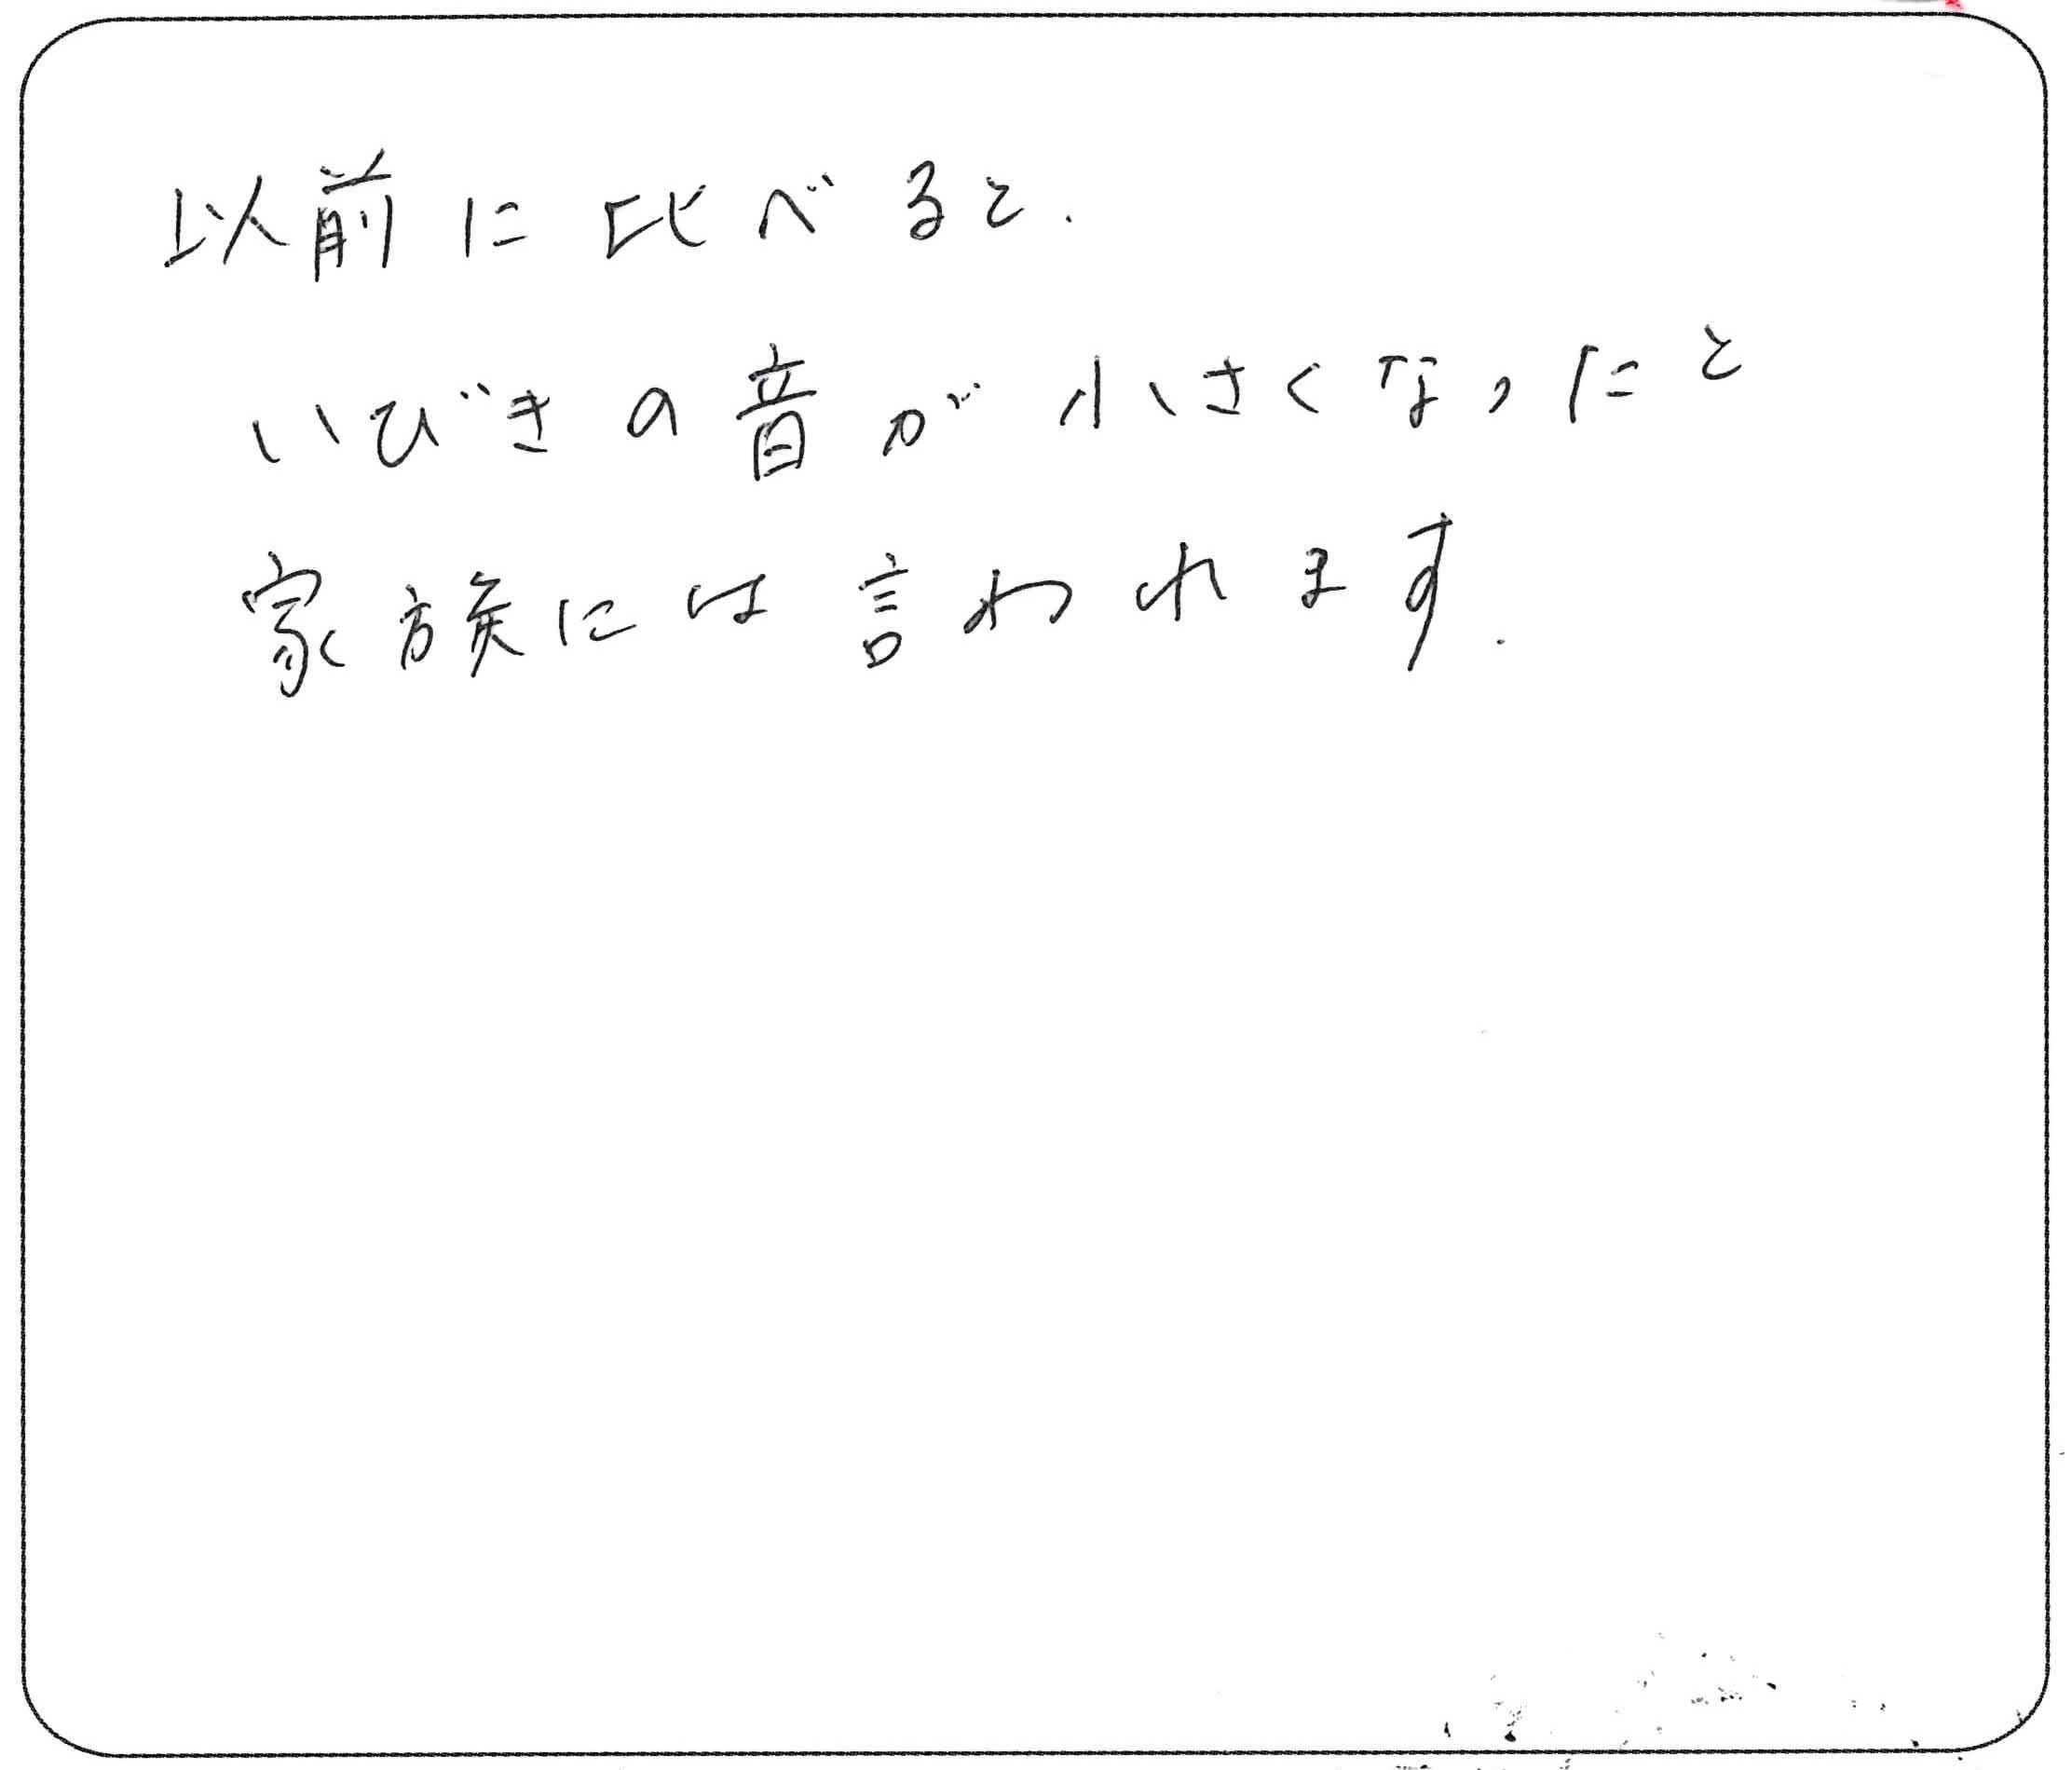 以前に比べると.
いびきの音が小さくなったと
家族には言われます.